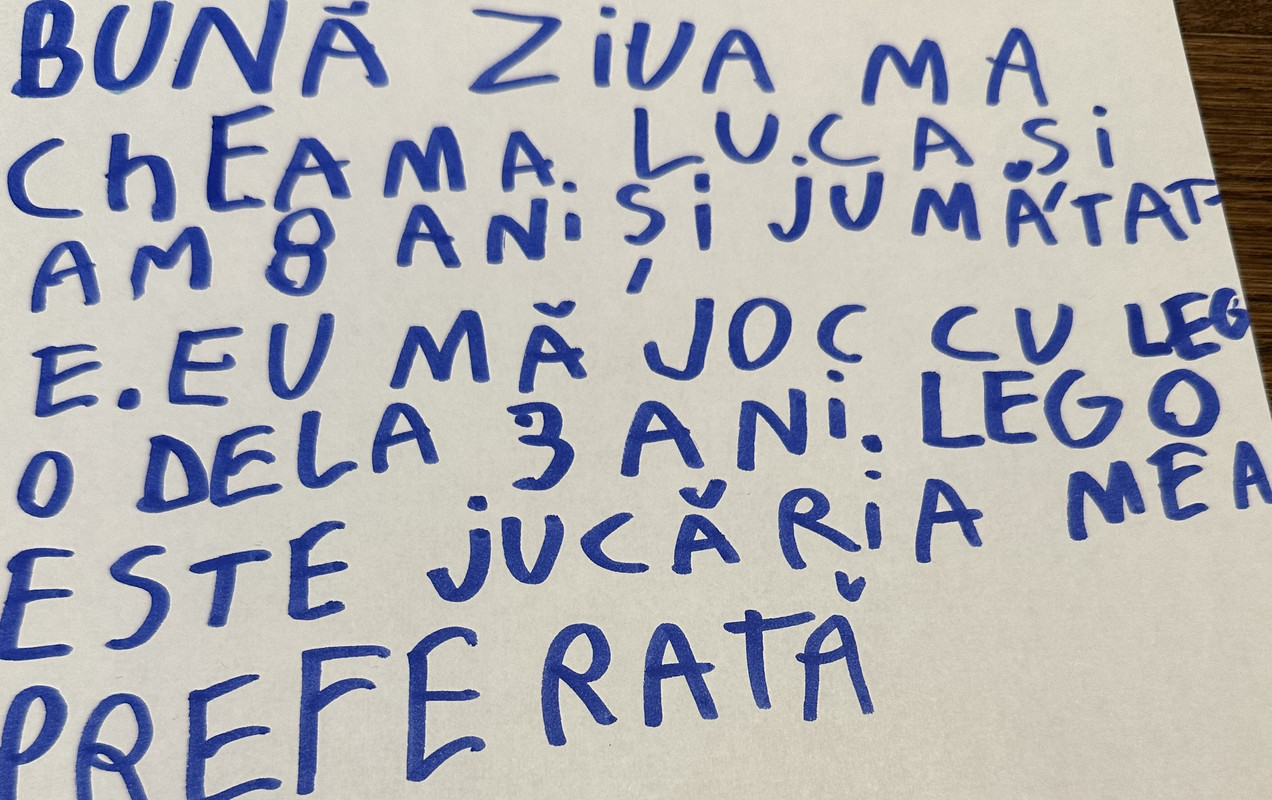 BUNĂ ZiUA MA
ChEAMA. LUCA Și
AM 8 ANi Și JUMĂTAT-
E. EU MĂ JOC CU LEG
O DELA 3 ANi. LEGO
ESTE jUCĂRiA MEA
PREFERATĂ